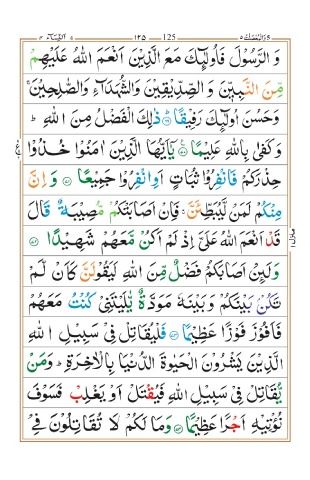 وَ الرَّسُوْلَ فَاُولٰٓئِكَ مَعَ الَّذِيْنَ اَنْعَمَ اللّٰهُ عَلَيْهِمْ
مِّنَ النَّبِيّٖنَ وَ الصِّدِّيْقِيْنَ وَالشُّهَدَآءِ وَالصّٰلِحِيْنَ ۚ
وَحَسُنَ اُولٰٓئِكَ رَفِيْقًا ۟ ذٰلِكَ الْفَضْلُ مِنَ اللّٰهِ ؕ
وَكَفٰى بِاللّٰهِ عَلِيْمًا ۟ يٰۤاَيُّهَا الَّذِيْنَ اٰمَنُوْا خُذُوْا
حِذْرَكُمْ فَانْفِرُوْا ثُبَاتٍ اَوِانْفِرُوْا جَمِيْعًا ۟ وَ اِنَّ
مِنْكُمْ لَمَنْ لَّيُبَطِّئَنَّ ۚ فَاِنْ اَصَابَتْكُمْ مُّصِيْبَةٌ قَالَ
قَدْ اَنْعَمَ اللّٰهُ عَلَيَّ اِذْ لَمْ اَكُنْ مَّعَهُمْ شَهِيْدًا ۟
وَلَئِنْ اَصَابَكُمْ فَضْلٌ مِّنَ اللّٰهِ لَيَقُوْلَنَّ كَاَنْ لَّمْ
تَكُنْۢ بَيْنَكُمْ وَبَيْنَهٗ مَوَدَّةٌ يّٰلَيْتَنِيْ كُنْتُ مَعَهُمْ
فَاَفُوْزَ فَوْزًا عَظِيْمًا ۟ فَلْيُقَاتِلْ فِيْ سَبِيْلِ اللّٰهِ
الَّذِيْنَ يَشْرُوْنَ الْحَيٰوةَ الدُّنْيَا بِالْاٰخِرَةِ ؕ وَمَنْ
يُّقَاتِلْ فِيْ سَبِيْلِ اللّٰهِ فَيُقْتَلْ اَوْ يَغْلِبْ فَسَوْفَ
نُؤْتِيْهِ اَجْرًا عَظِيْمًا ۟ وَمَا لَكُمْ لَا تُقَاتِلُوْنَ فِيْ